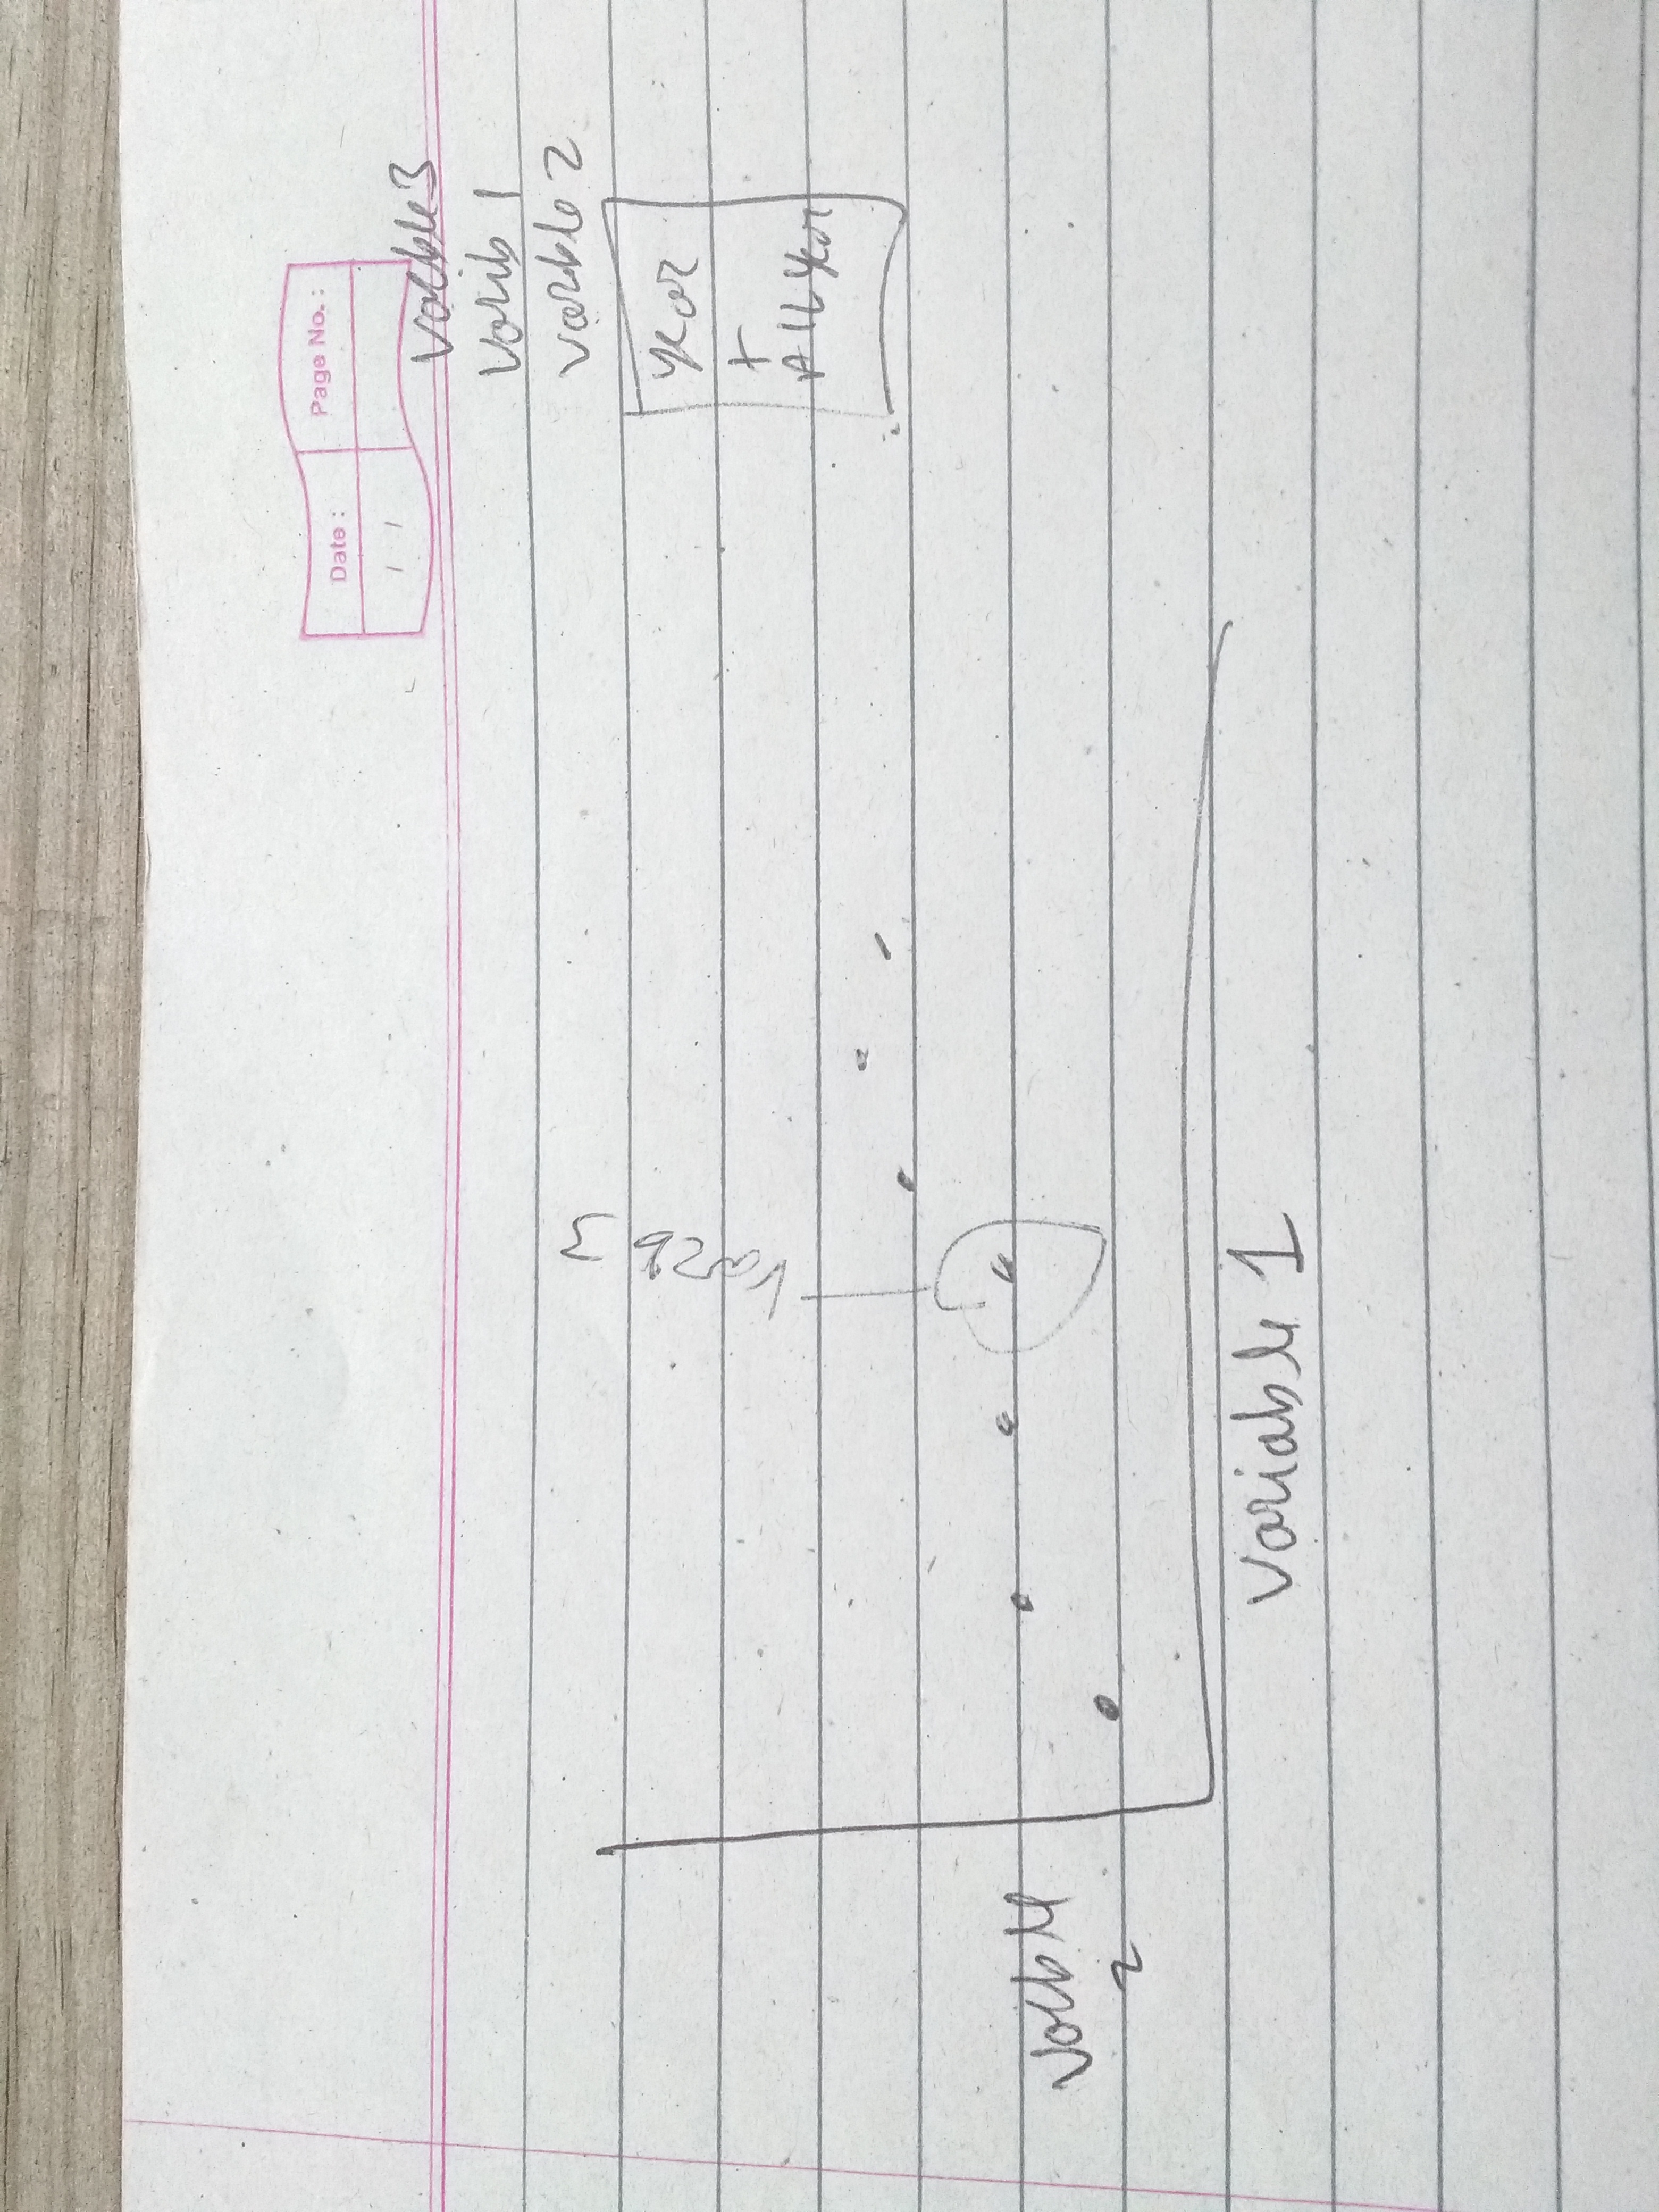 Date :
Page No. :
/ /
Varible3
Varib 1
Varible 2
year
+
All year
Varible
2
Variable 1